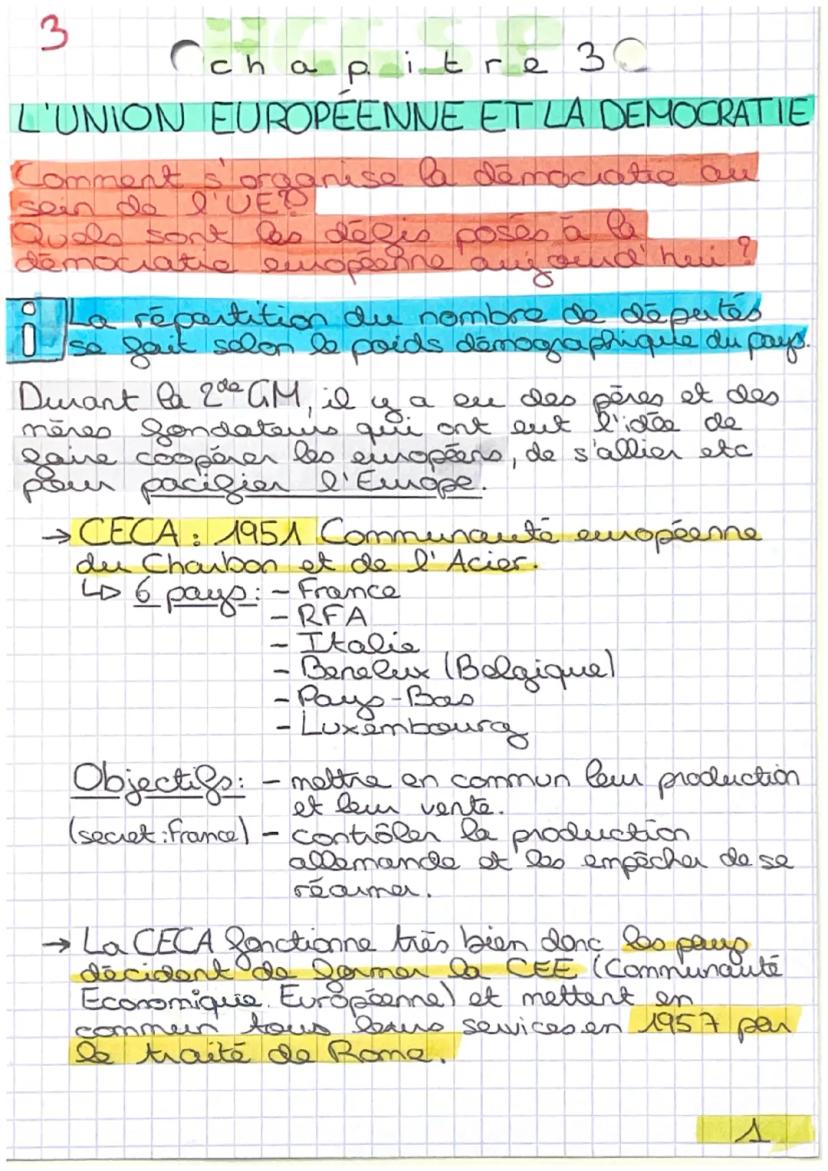 3
HGGSP
chapitre 3
L'UNION EUROPÉENNE ET LA DEMOCRATIE
Comment s'organise la démocratie au
sein de l'UE?
Quels sont les défis posés à la
démocratie européenne aujourd'hui ?
i La répartition du nombre de députés
se fait selon le poids démographique du pays.
Durant la 2de GM, il y a eu des pères et des
mères fondateurs qui ont eut l'idée de
faire coopérer les européens, de s'allier etc
pour pacifier l'Europe.
→ CECA : 1951 Communauté européenne
du Charbon et de l'Acier.
↳ 6 pays : - France
- RFA
- Italie
- Benelux (Belgique)
- Pays-Bas
- Luxembourg
Objectifs : - mettre en commun leur production
et leur vente.
(secret : France) - contrôler la production
allemande et les empêcher de se
réarmer.
→ La CECA fonctionne très bien donc les pays
décident de former la CEE (Communauté
Economique Européenne) et mettent en
commun tous leurs services en 1957 par
le traité de Rome.
1